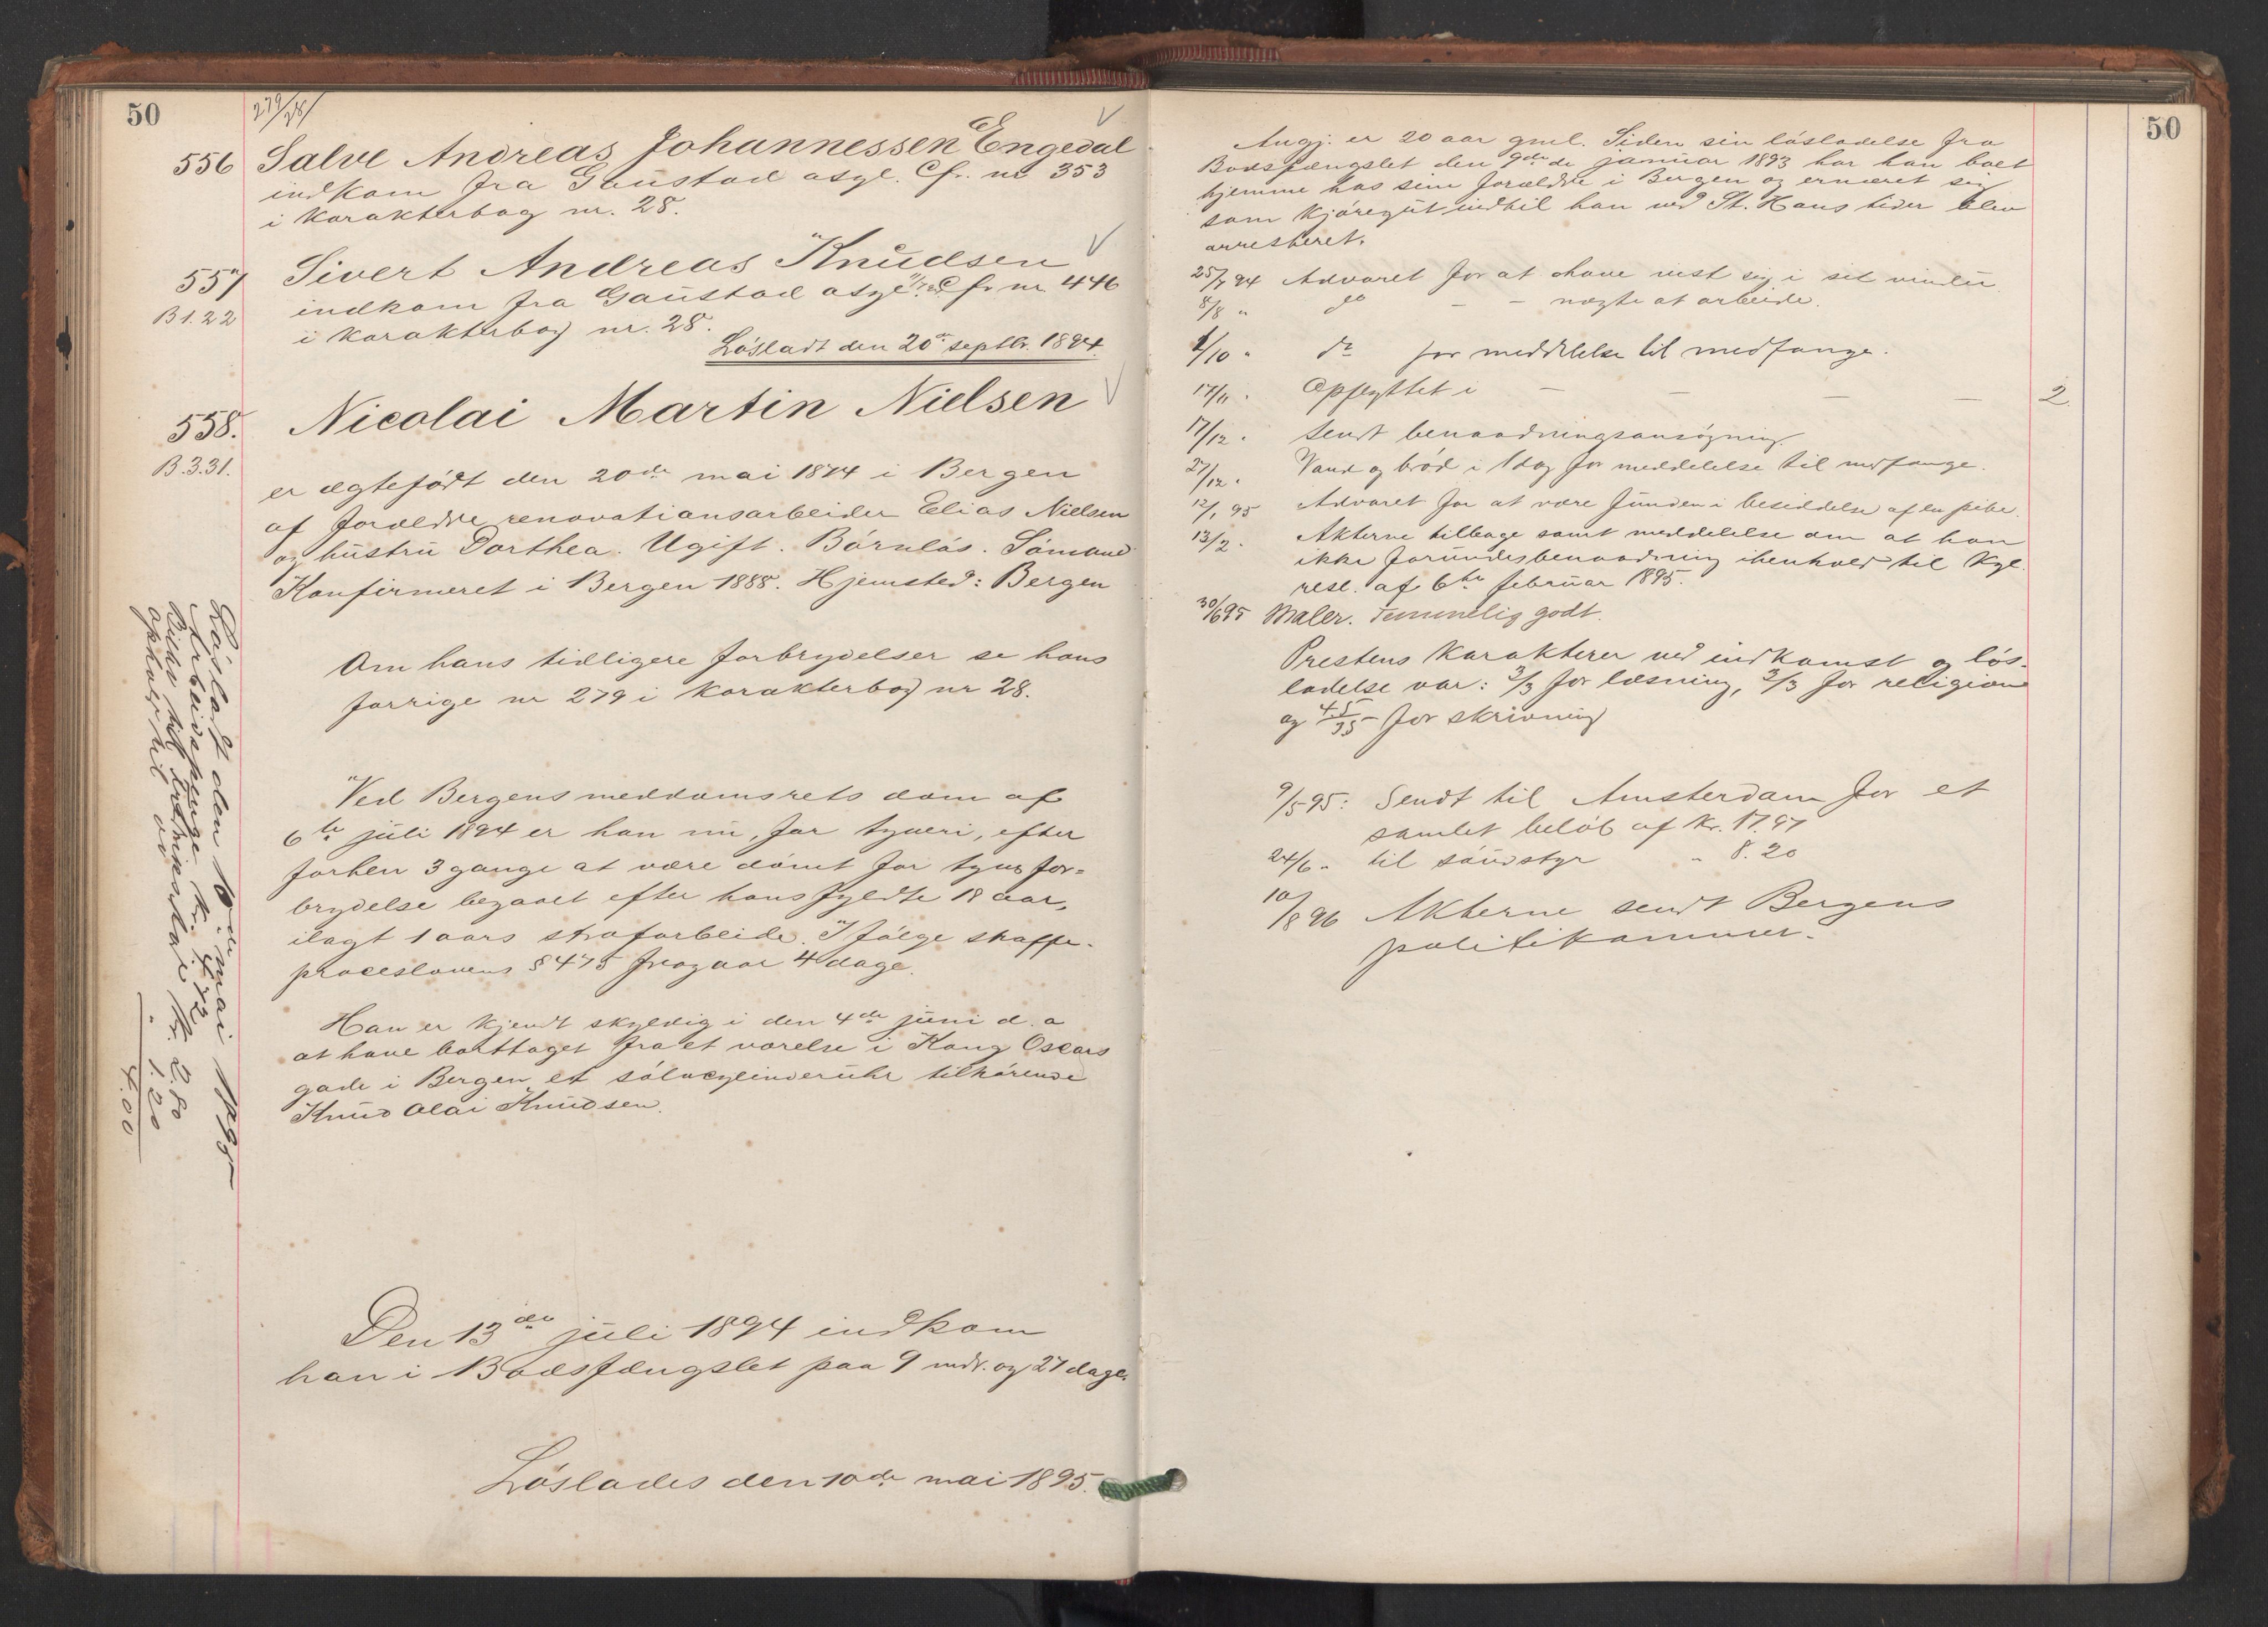 50
279/28/
556 Salve Andreas Johannessen Engedal
indkom fra Gaustad asyl. Cfr. no 353
i karakterbog nr. 28.
557 Sivert Andreas Knudsen
B 1. 22 indkom fra Gaustad asyl Cfr nr 446
i karakterbog nr. 28.
Løsladt den 20de septbr. 1894.
558. Nicolai Martin Nielsen
B. 3. 31.
er ægtefødt den 20de mai 1874 i Bergen
af forældre renovationsarbeider Elias Nielsen
og hustru Dorthea. Ugift. Børnløs. Sømand
Konfirmeret i Bergen 1888. Hjemsted: Bergen
Om hans tidligere forbrydelser se hans
forrige nr 279 i karakterbog nr 28.
Ved Bergens meddomsrets dom af
6te juli 1894 er han nu, for tyveri, efter
forhen 3 gange at være dømt for tyvsfor=
brydelse begaaet efter hans fyldte 18 aar,
ilagt 1 aars strafarbeide. Ifølge straffe-
proceslovens § 475 fragaar 4 dage.
Han er kjendt skyldig i den 4de juni d. a
at have borttaget fra et værelse i Kong Oscars
gade i Bergen et sølvcylinderuhr tilhørende
Knud Olai Knudsen.
Den 13de juli 1894 indkom
han i Bodsfængslet paa 9 mdr. og 27 dage.
Løslades den 10de mai 1895.
Løsladt den 10de mai 1895
Arbeidspenge kr. 4.72
Billet til kr. 2.80
ophold til do " 1.20
4.00
50
Angj. er 20 aar gml. Siden sin løsladelse fra
Bodsfængslet den 9de januar 1893 har han boet
hjemme hos sine forældre i Bergen og ernæret sig
som kjøregut indtil han ved St. Hans tider blev
arresteret.
25/7 94 Advaret for at have vist sig i sit vindu
8/8 " do - - nægte at arbeide.
1/10 " do for meddelelse til medfange.
17/11 " Opflyttet i - - - - 2.
17/12 " Sendt benaadningsansøgning.
27/12 " Vand og brød i 1 dag for meddelelse til medfange.
12/1 95 Advaret for at være funden i besiddelse af en pibe.
13/2 " Akterne tilbage samt meddelelse om at han
ikke forundes benaadning ihenhold til kgl.
resl. af 6te februar 1895.
30/6 95 Maler. Temmelig godt.
Prestens karakterer ved indkomst og løs-
ladelse var: 3/3 for læsning, 3/3 for religion
og 4.5/35 for skrivning
9/5 95: Sendt til Amsterdam for et
samlet beløb af kr. 17.97
24/6 " til " 8.20
10/8 96 Akterne sendt Bergens
politikammer.